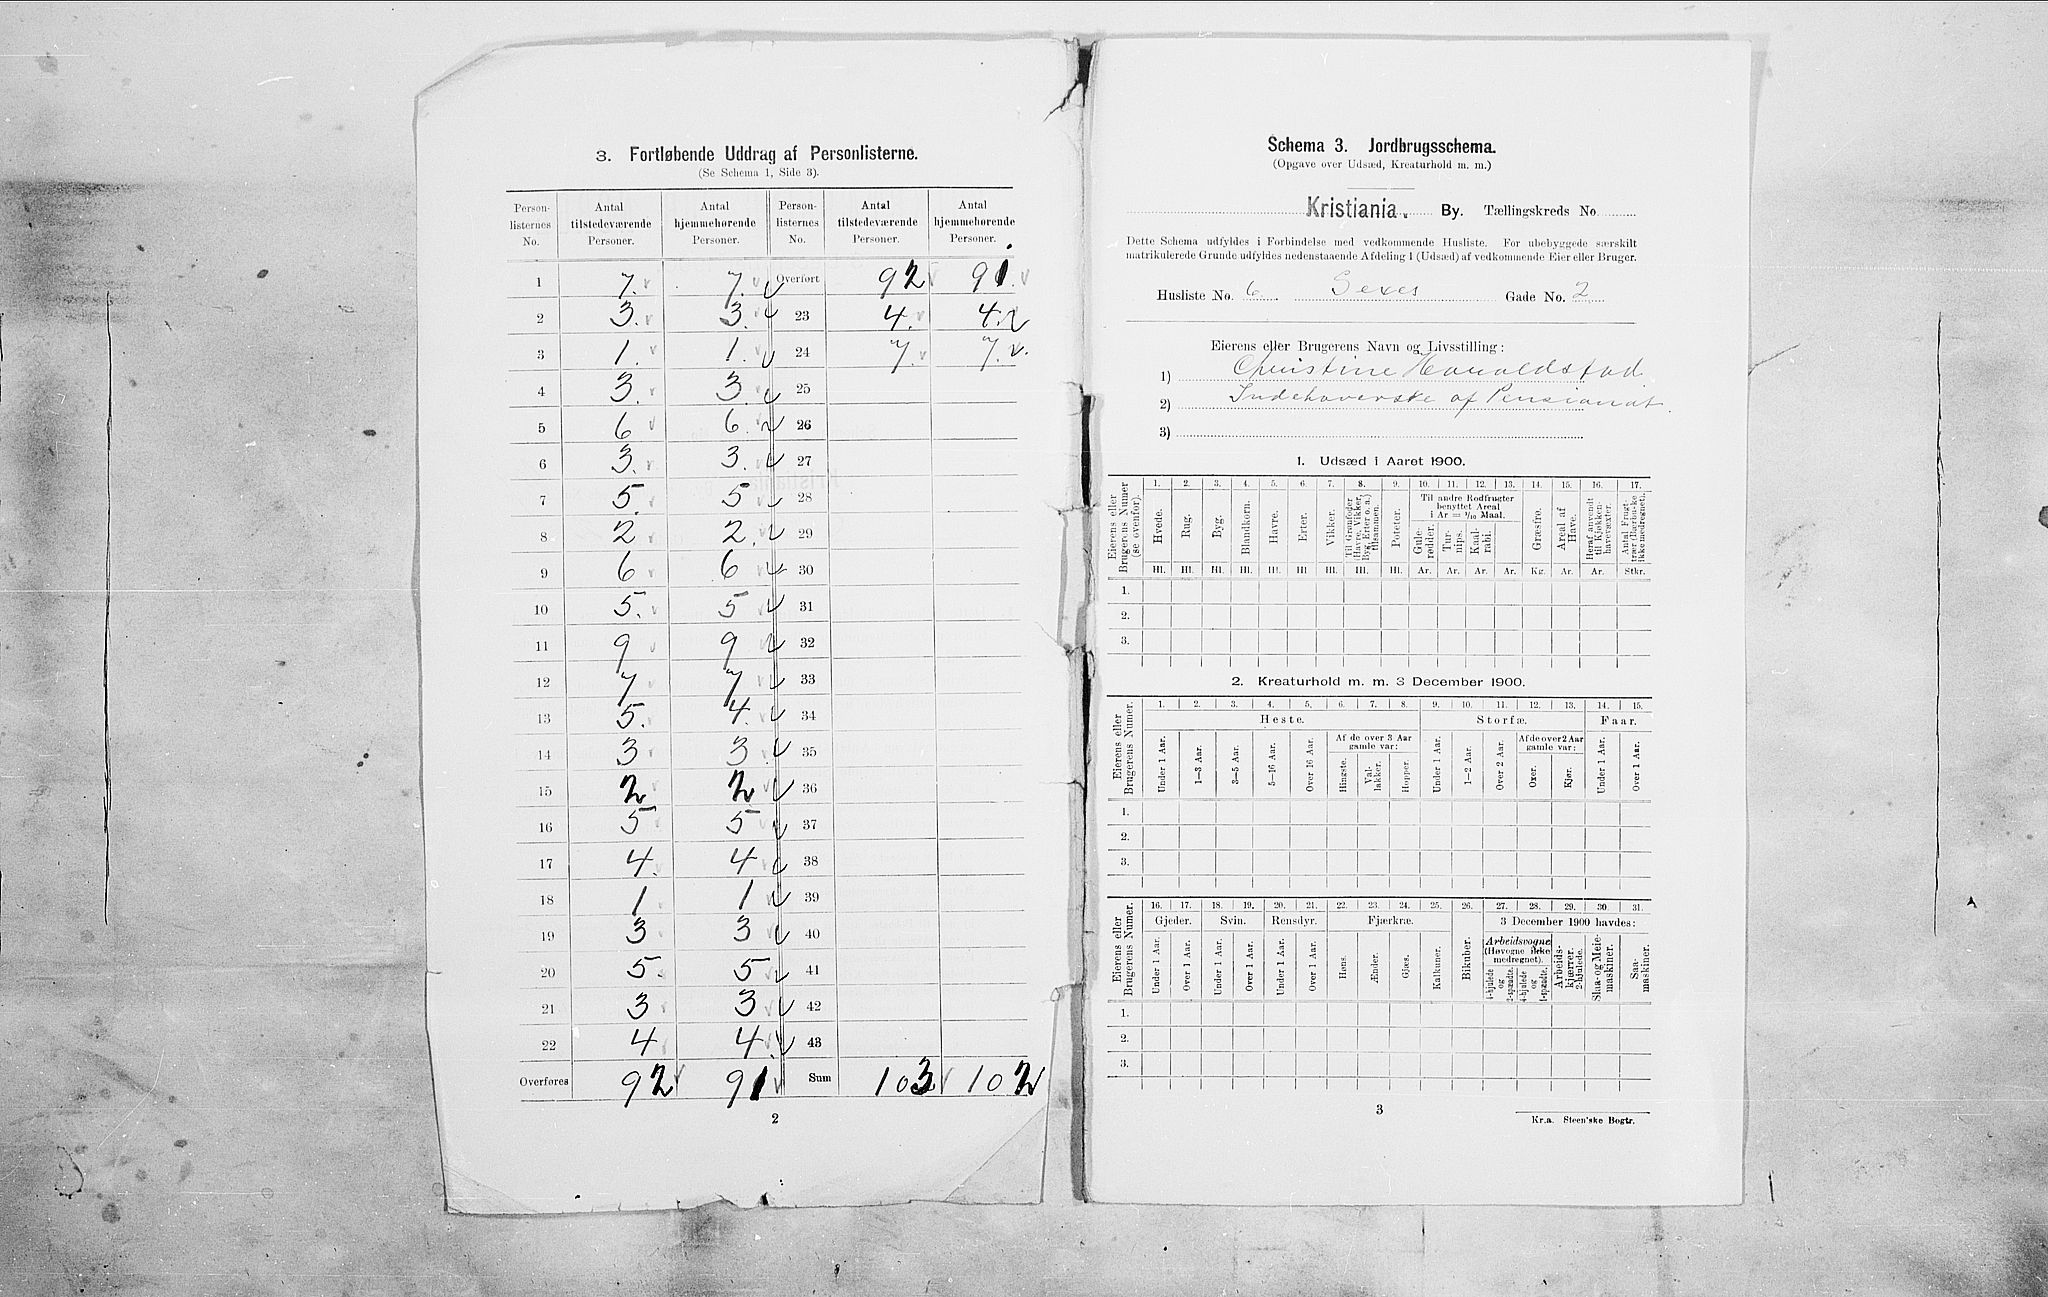 3. Fortløbende Uddrag af Personlisterne.
(Se Schema 1, Side 3).
Person-listernes No. | Antal tilstedeværende Personer. | Antal hjemmehørende Personer. | Person-listernes No. | Antal tilstedeværende Personer. | Antal hjemmehørende Personer.
1 7. 7. Overført 92 91.
2 3. 3. 23 4. 4.
3 1. 1. 24 7. 7.
4 3. 3. 25
5 6 6. 26
6 3. 3. 27
7 5. 5 28
8 2 2. 29
9 6 6 30
10 5. 5 31
11 9 9 32
12 7 7 33
13 5. 4. 34
14 3 3 35
15 2 2 36
16 5 5 37
17 4. 4 38
18 1 1 39
19 3 3 40
20 5 5 41
21 3 3 42
22 4 4 43
Overføres 92 91 Sum 103 102
2
Schema 3. Jordbrugsschema.
(Opgave over Udsæd, Kreaturhold m. m.)
Kristiania. By. Tællingskreds No.
Dette Schema udfyldes i Forbindelse med vedkommende Husliste. For ubebyggede særskilt
matrikulerede Grunde udfyldes nedenstaaende Afdeling 1 (Udsæd) af vedkommende Eier eller Bruger.
Husliste No. 6 Gade No. 2
Eierens eller Brugerens Navn og Livsstilling:
1) Christine Haraldstad
2) Indehaverske af Pensionat.
3)
1. Udsæd i Aaret 1900.
Eierens eller Brugerens Numer (se ovenfor).
1. 2. 3. 4. 5. 6. 7. 8. 9. 10. 11. 12. 13. 14. 15. 16. 17.
Hvede. Rug. Byg. Blandkorn. Havre. Erter. Vikker. Til Grønfoder Havre, Vikker, Byg, Erter o. a.) tilsammen. Poteter.
Til andre Rodfrugter benyttet Areal i Ar = 1/10 Maal.
Gule-rødder. Tur-nips. Kaal-rabi. Græsfrø. Areal af Have. Heraf anvendt til Kjøkken-havevæxter. Antal Frugt-trær (Bærbuske ikke medregnet).
Hl. Hl. Hl. Hl. Hl. Hl Hl. Hl. Hl. Ar. Ar. Ar. Ar. Kg. Ar. Ar. Stkr.
1.
2.
3.
2. Kreaturhold m. m. 3 December 1900.
Eierens eller Brugerens Numer.
1. 2. 3. 4. 5. 6. 7. 8. 9. 10. 11. 12. 13. 14. 15.
Heste. Storfæ. Faar.
Af de over 3 Aar gamle var: Af de over 2 Aar gamle var:
Under 1 Aar. 1—3 Aar. 3—5 Aar. 5—16 Aar. Over 16 Aar. Hingste. Val-lakker. Hopper. Under 1 Aar. 1—2 Aar. Over 2 Aar. Oxer. Kjør. Under 1 Aar. Over 1 Aar.
1.
2.
3.
Eierens eller Brugerens Numer.
16. 17. 18. 19. 20. 21. 22. 23. 24. 25. 26. 27. 28. 29. 30. 31.
Gjeder. Svin. Rensdyr. Fjærkræ. 3 December 1900 havdes:
Under 1 Aar. Over 1 Aar. Under 1 Aar. Over 1 Aar. Under 1 Aar. Over 1 Aar. Høns. Ænder. Gjæs. Kalkuner. Bikuber.
Arbeidsvogne (Høvogne ikke medregnet).
4-hjulede og 2-spændte. 4-hjulede og 1-spændte. Arbeids-kjærrer. 2-hjulede. Slaa- og Meie-maskiner. Saa-maskiner.
1.
2.
3.
3
Kr.a. Steen'ske Bogtr.